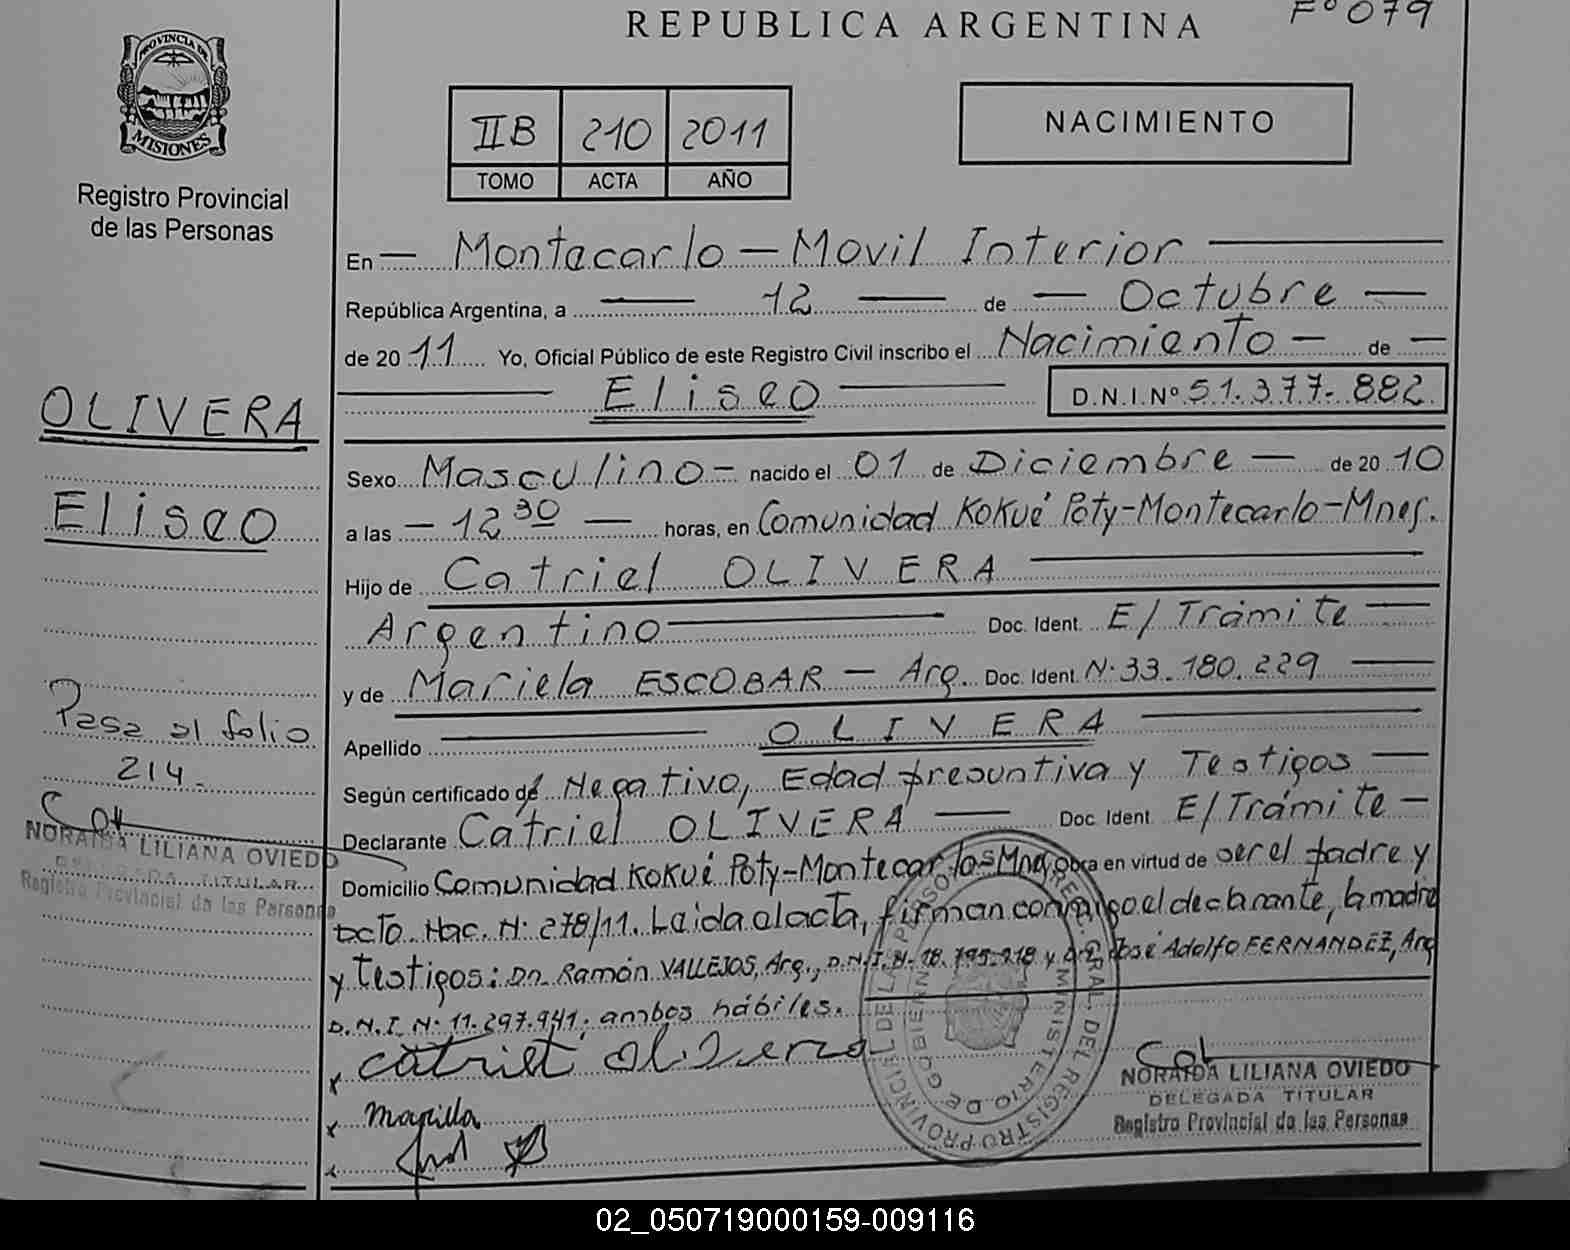 Fº 079
REPUBLICA ARGENTINA
PROVINCIA DE
MISIONES
Registro Provincial
de las Personas
IIB 210 2011
TOMO ACTA AÑO
NACIMIENTO
En — Montecarlo — Movil Interior
República Argentina, a — 12 — de — Octubre —
de 20 11 Yo, Oficial Público de este Registro Civil inscribo el Nacimiento — de —
Eliseo
D.N.I.Nº 51.377.882
OLIVERA
Eliseo
Sexo Masculino — nacido el 01 de Diciembre — de 20 10
a las — 12 30 — horas, en Comunidad Kokué Poty-Montecarlo-Mnes.
Hijo de Catriel OLIVERA
Argentino Doc. Ident. E/Trámite
y de Mariela ESCOBAR — Arg. Doc. Ident. N· 33.180.229
Apellido OLIVERA
Según certificado de Negativo, Edad presuntiva y Testigos
Declarante Catriel OLIVERA — Doc. Ident. E/Trámite —
Domicilio Comunidad Kokué Poty-Montecarlo-Mnes. obra en virtud de ser el padre y
Dcto. Nac. N· 278/11. Leida el acta, firman conmigo el declarante, la madre
y testigos: Dn. Ramón VALLEJOS, Arg., D.N.I. N· 18.795.218 y José Adolfo FERNANDEZ, Arg
D.N.I. N· 11.297.941; ambos hábiles.
Pasa al folio
214.
NORAIDA LILIANA OVIEDO
DELEGADA TITULAR
Registro Provincial de las Personas
x catriel Olivera
x
x
REC. GRAL. DEL REGISTRO PROVINCIAL DE LAS PERSONAS
MINISTERIO DE GOBIERNO
NORAIDA LILIANA OVIEDO
DELEGADA TITULAR
Registro Provincial de las Personas
02_050719000159-009116